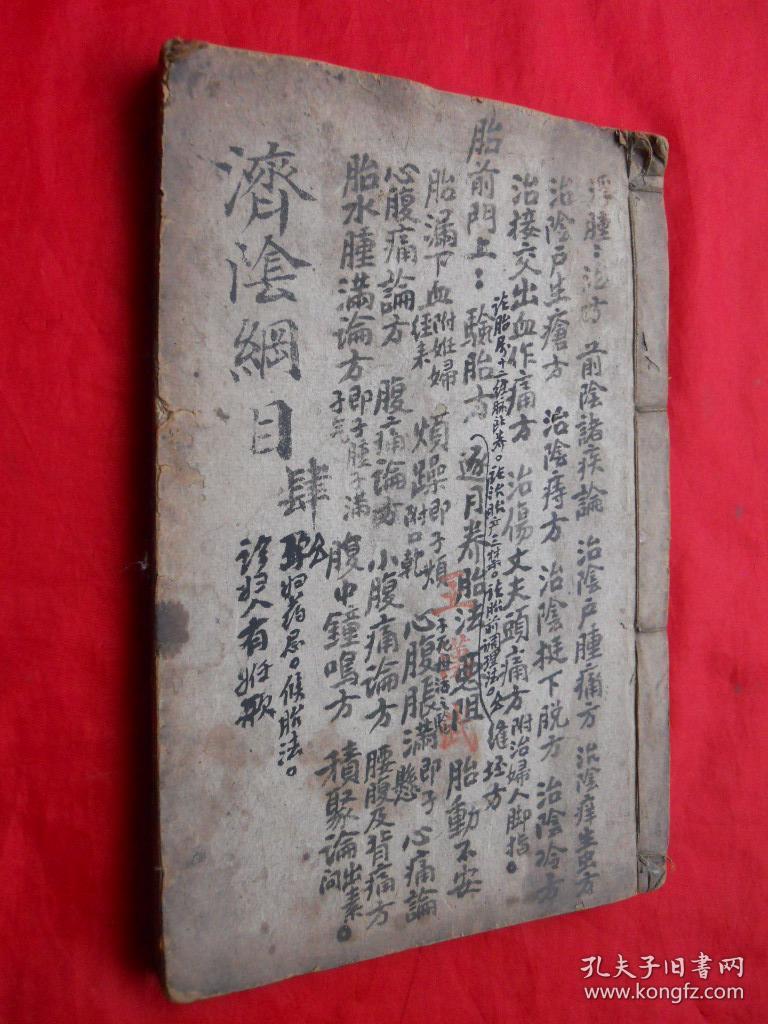 浮腫：治方 前陰諸疾論 治陰戶腫痛方 治陰痒生虫方
治陰戶生瘡方 治陰痔方 治陰挺下脫方 治陰冷方
治接交出血作痛方 治傷丈夫頭痛方附治婦人脚指。
論胎前調理法。
胎前門上：驗胎方 逐月养胎法 惡阻 胎動不安
胎漏下血附妊婦經来 煩躁即子煩附口乾 心腹脹满即子懸 心痛論
心腹痛論方 腹痛論方 小腹痛論方 腰腹及背痛方
胎水腫滿論方即子腫子满子气 腹中鐘鳴方 積聚論出素問。
孕妇药忌。候胎法。
診妇人有妊歌
濟陰綱目 肆
王
孔夫子旧书网
www.kongfz.com